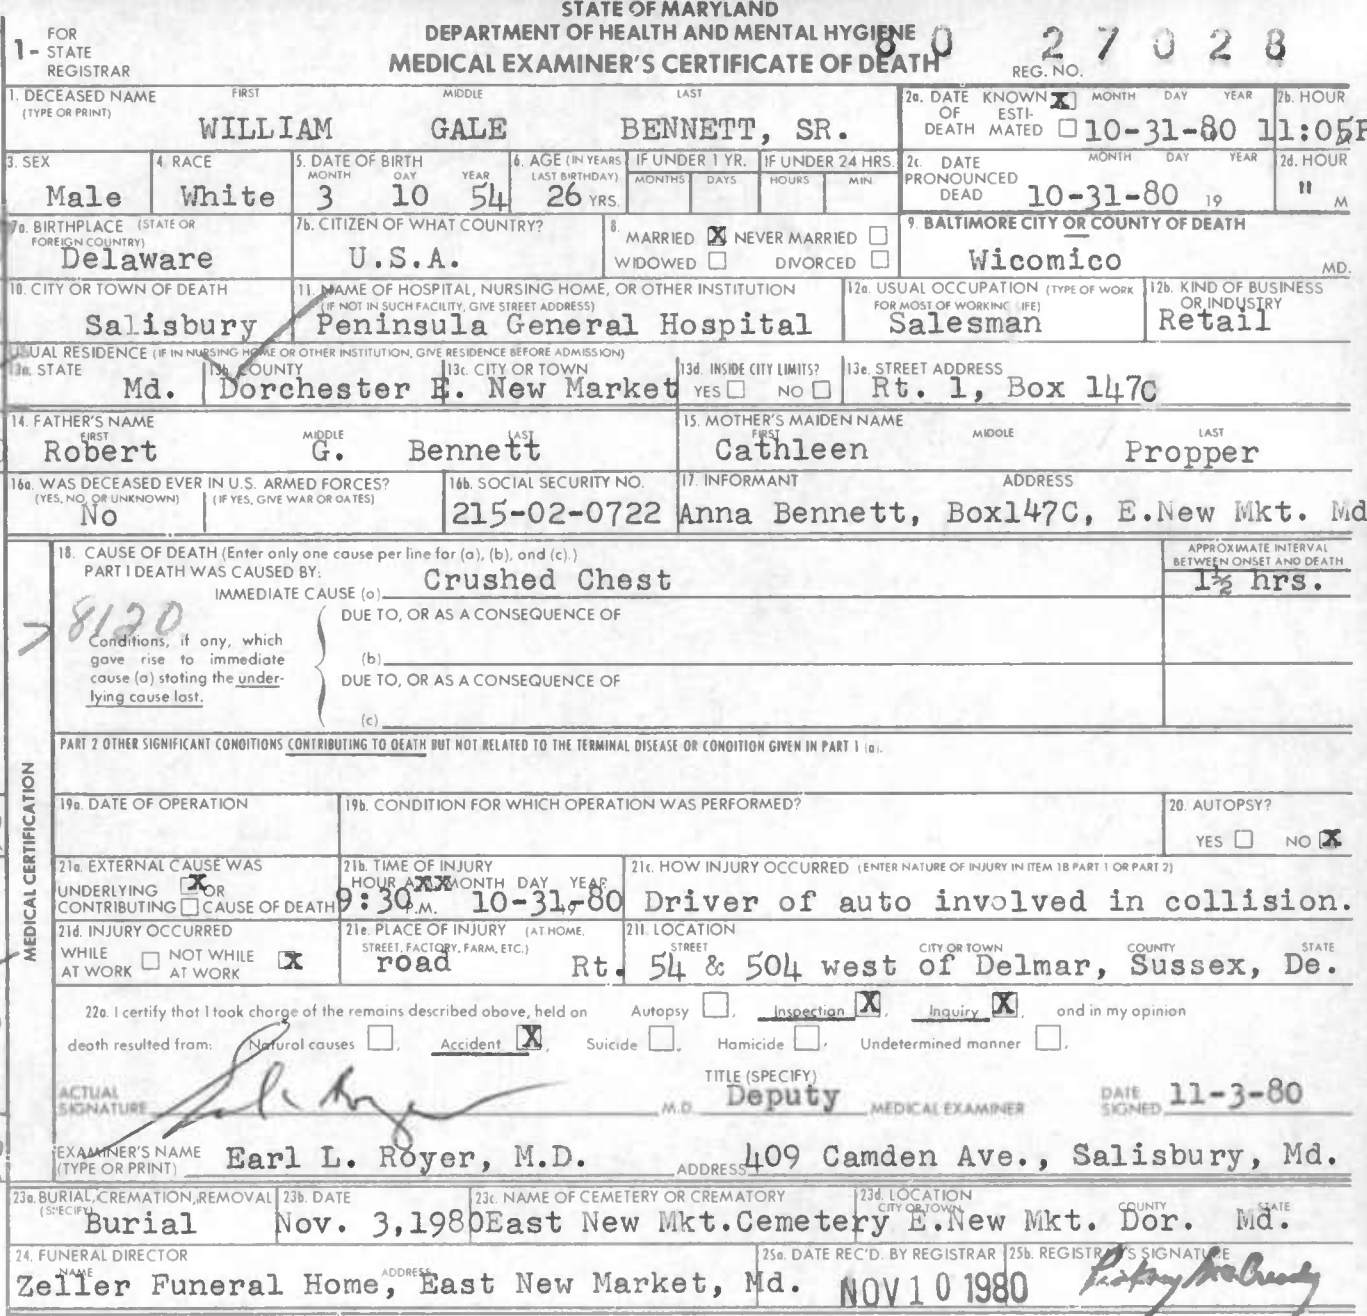 STATE OF MARYLAND
DEPARTMENT OF HEALTH AND MENTAL HYGIENE
MEDICAL EXAMINER'S CERTIFICATE OF DEATH
1- FOR STATE REGISTRAR
80 27028
REG. NO.
1. DECEASED NAME (TYPE OR PRINT) FIRST MIDDLE LAST
WILLIAM GALE BENNETT, SR.
2a. DATE OF DEATH KNOWN X ESTIMATED MONTH DAY YEAR
10-31-80
2b. HOUR
11:05P
3. SEX
Male
4. RACE
White
5. DATE OF BIRTH MONTH DAY YEAR
3 10 54
6. AGE (IN YEARS LAST BIRTHDAY)
26 YRS.
IF UNDER 1 YR. MONTHS DAYS
IF UNDER 24 HRS. HOURS MIN.
2c. DATE PRONOUNCED DEAD MONTH DAY YEAR
10-31-80 19
2d. HOUR
" M
7a. BIRTHPLACE (STATE OR FOREIGN COUNTRY)
Delaware
7b. CITIZEN OF WHAT COUNTRY?
U.S.A.
8. MARRIED X NEVER MARRIED
WIDOWED DIVORCED
9. BALTIMORE CITY OR COUNTY OF DEATH
Wicomico MD.
10. CITY OR TOWN OF DEATH
Salisbury
11. NAME OF HOSPITAL, NURSING HOME, OR OTHER INSTITUTION
(IF NOT IN SUCH FACILITY, GIVE STREET ADDRESS)
Peninsula General Hospital
12a. USUAL OCCUPATION (TYPE OF WORK FOR MOST OF WORKING LIFE)
Salesman
12b. KIND OF BUSINESS OR INDUSTRY
Retail
USUAL RESIDENCE (IF IN NURSING HOME OR OTHER INSTITUTION, GIVE RESIDENCE BEFORE ADMISSION)
13a. STATE
Md.
13b. COUNTY
Dorchester
13c. CITY OR TOWN
E. New Market
13d. INSIDE CITY LIMITS?
YES NO
13e. STREET ADDRESS
Rt. 1, Box 147C
14. FATHER'S NAME FIRST MIDDLE LAST
Robert G. Bennett
15. MOTHER'S MAIDEN NAME FIRST MIDDLE LAST
Cathleen Propper
16a. WAS DECEASED EVER IN U.S. ARMED FORCES?
(YES, NO, OR UNKNOWN) (IF YES, GIVE WAR OR DATES)
No
16b. SOCIAL SECURITY NO.
215-02-0722
17. INFORMANT ADDRESS
Anna Bennett, Box147C, E.New Mkt. Md
MEDICAL CERTIFICATION
18. CAUSE OF DEATH (Enter only one cause per line for (a), (b), and (c).)
PART I DEATH WAS CAUSED BY:
IMMEDIATE CAUSE (a) Crushed Chest
APPROXIMATE INTERVAL BETWEEN ONSET AND DEATH
1½ hrs.
8120
DUE TO, OR AS A CONSEQUENCE OF
Conditions, if any, which gave rise to immediate cause (a) stating the underlying cause last.
(b)
DUE TO, OR AS A CONSEQUENCE OF
(c)
PART 2 OTHER SIGNIFICANT CONDITIONS CONTRIBUTING TO DEATH BUT NOT RELATED TO THE TERMINAL DISEASE OR CONDITION GIVEN IN PART 1 (a).
19a. DATE OF OPERATION
19b. CONDITION FOR WHICH OPERATION WAS PERFORMED?
20. AUTOPSY?
YES NO X
21a. EXTERNAL CAUSE WAS
UNDERLYING X OR
CONTRIBUTING CAUSE OF DEATH
21b. TIME OF INJURY
HOUR A.XX MONTH DAY YEAR
9:30 P.M. 10-31-80
21c. HOW INJURY OCCURRED (ENTER NATURE OF INJURY IN ITEM 18 PART 1 OR PART 2)
Driver of auto involved in collision.
21d. INJURY OCCURRED
WHILE AT WORK NOT WHILE AT WORK X
21e. PLACE OF INJURY (AT HOME, STREET, FACTORY, FARM, ETC.)
road
21f. LOCATION STREET CITY OR TOWN COUNTY STATE
Rt. 54 & 504 west of Delmar, Sussex, De.
22a. I certify that I took charge of the remains described above, held on Autopsy , Inspection X , Inquiry X , and in my opinion
death resulted from: Natural causes , Accident X , Suicide , Homicide , Undetermined manner .
ACTUAL SIGNATURE
M.D.
TITLE (SPECIFY)
Deputy MEDICAL EXAMINER
DATE SIGNED 11-3-80
EXAMINER'S NAME (TYPE OR PRINT) Earl L. Royer, M.D.
ADDRESS 409 Camden Ave., Salisbury, Md.
23a. BURIAL, CREMATION, REMOVAL (SPECIFY)
Burial
23b. DATE
Nov. 3,1980
23c. NAME OF CEMETERY OR CREMATORY
East New Mkt.Cemetery
23d. LOCATION CITY OR TOWN COUNTY STATE
E.New Mkt. Dor. Md.
24. FUNERAL DIRECTOR
NAME ADDRESS
Zeller Funeral Home, East New Market, Md.
25a. DATE REC'D. BY REGISTRAR
NOV 10 1980
25b. REGISTRAR'S SIGNATURE